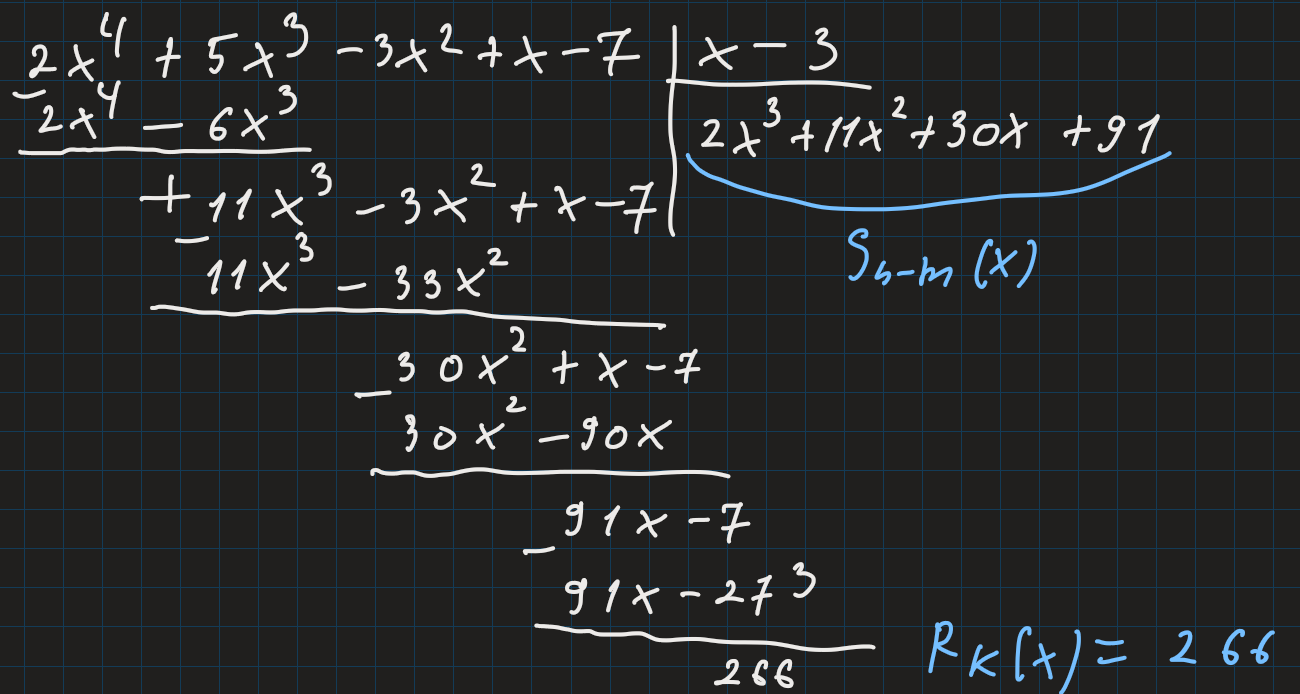 2x⁴ + 5x³ - 3x² + x - 7 | x - 3
- 2x⁴ - 6x³
2x³ + 11x² + 30x + 91
+ 11x³ - 3x² + x - 7
- 11x³ - 33x²
Sₙ₋ₘ(x)
30x² + x - 7
- 30x² - 90x
91x - 7
- 91x - 273
266
Rₖ(x) = 266